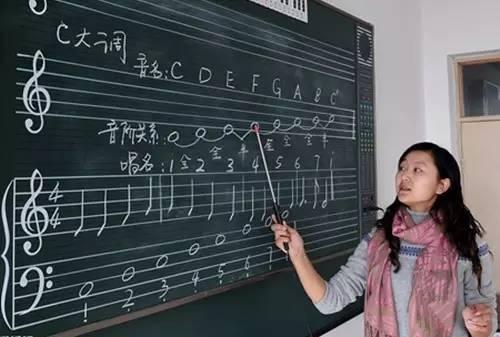 C大调
音名: C D E F G A B C
音阶关系: 全 全 半 全 全 全 半
唱名: 1 2 3 4 5 6 7 i
4 4
4 4
1 2 3 4 5 6 7